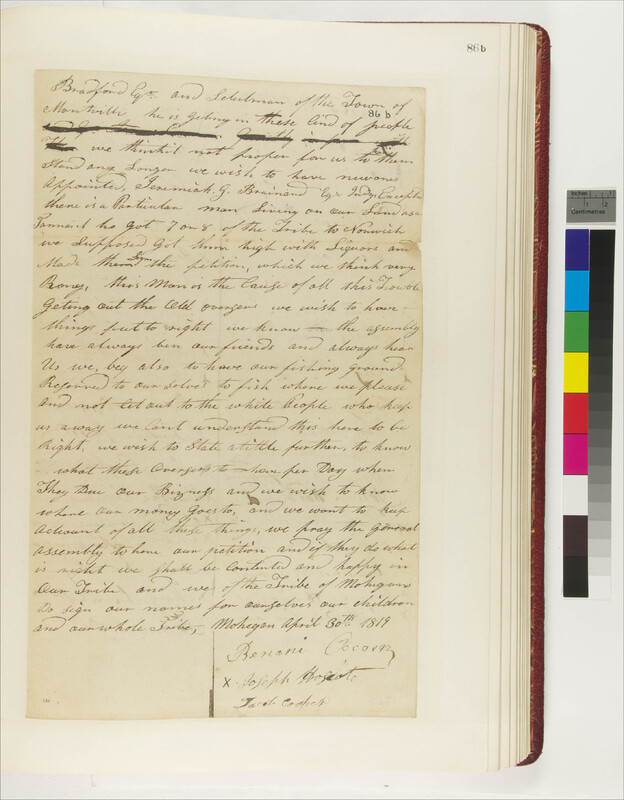 86b
Bradford Esqr. and Selectman of the Town of
Montville he is geting in these kind of people
86 b
we think it not proper for us to them
Stand any Longer we wish to have new ones
Appointed, Jeremiah, G. Brainard Esqr
there is a Particular man Living on our Land as a
Tennent he got 7 or 8 of the Tribe to Norwich
we Supposed Got them high with Liquors and
Made them Sign the petition, which we think very
Rong, this Man is the Cause of all this Trouble
Geting out the Old overseers we wish to have
things put to right we know the assembly
have always ben our friends and always hear
Us we, beg also to have our fishing ground
Reserved to our Selves to fish where we please
and not Let out to the white People who keep
us away we Cant understand this here to be
Right, we wish to State a little further, to know
what these Overseers to have per Day when
They Due our Bizness and we wish to know
where our money Goes to, and we want to keep
Account of all these things, we pray the General
Assembly to hear our petition and if they do what
is right we Shall be Contented and happy in
Our Tribe and we of the Tribe of Mohegans
Do sign our names for ourselves our children
and our whole Tribe, Mohegan April 30th 1819
Benoni Occom
X Joseph
Jacob Cooper
Inches 1 2
Centimetres